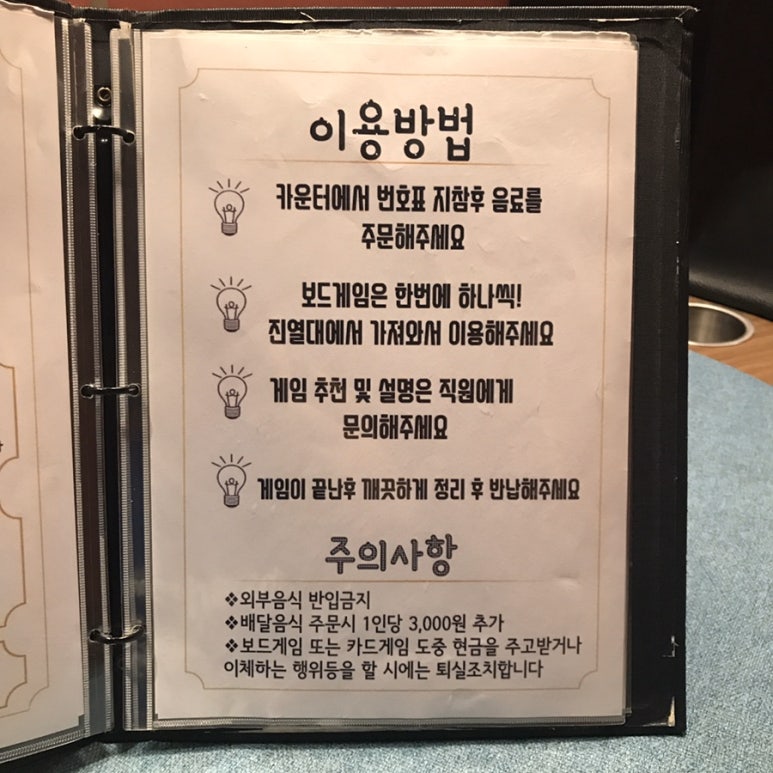 이용방법
카운터에서 번호표 지참후 음료를
주문해주세요
보드게임은 한번에 하나씩!
진열대에서 가져와서 이용해주세요
게임 추천 및 설명은 직원에게
문의해주세요
게임이 끝난후 깨끗하게 정리 후 반납해주세요
주의사항
❖외부음식 반입금지
❖배달음식 주문시 1인당 3,000원 추가
❖보드게임 또는 카드게임 도중 현금을 주고받거나
이체하는 행위등을 할 시에는 퇴실조치합니다